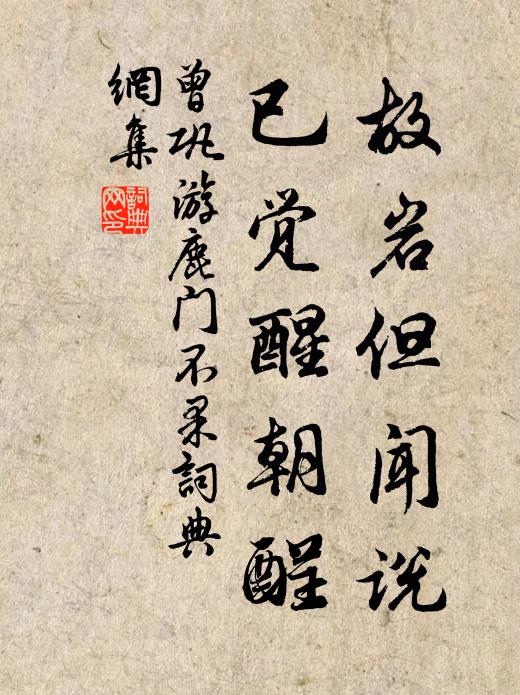 故岩但闻说
已觉醒朝酲
曾巩游鹿门不果詞典
網集
詞典
网印